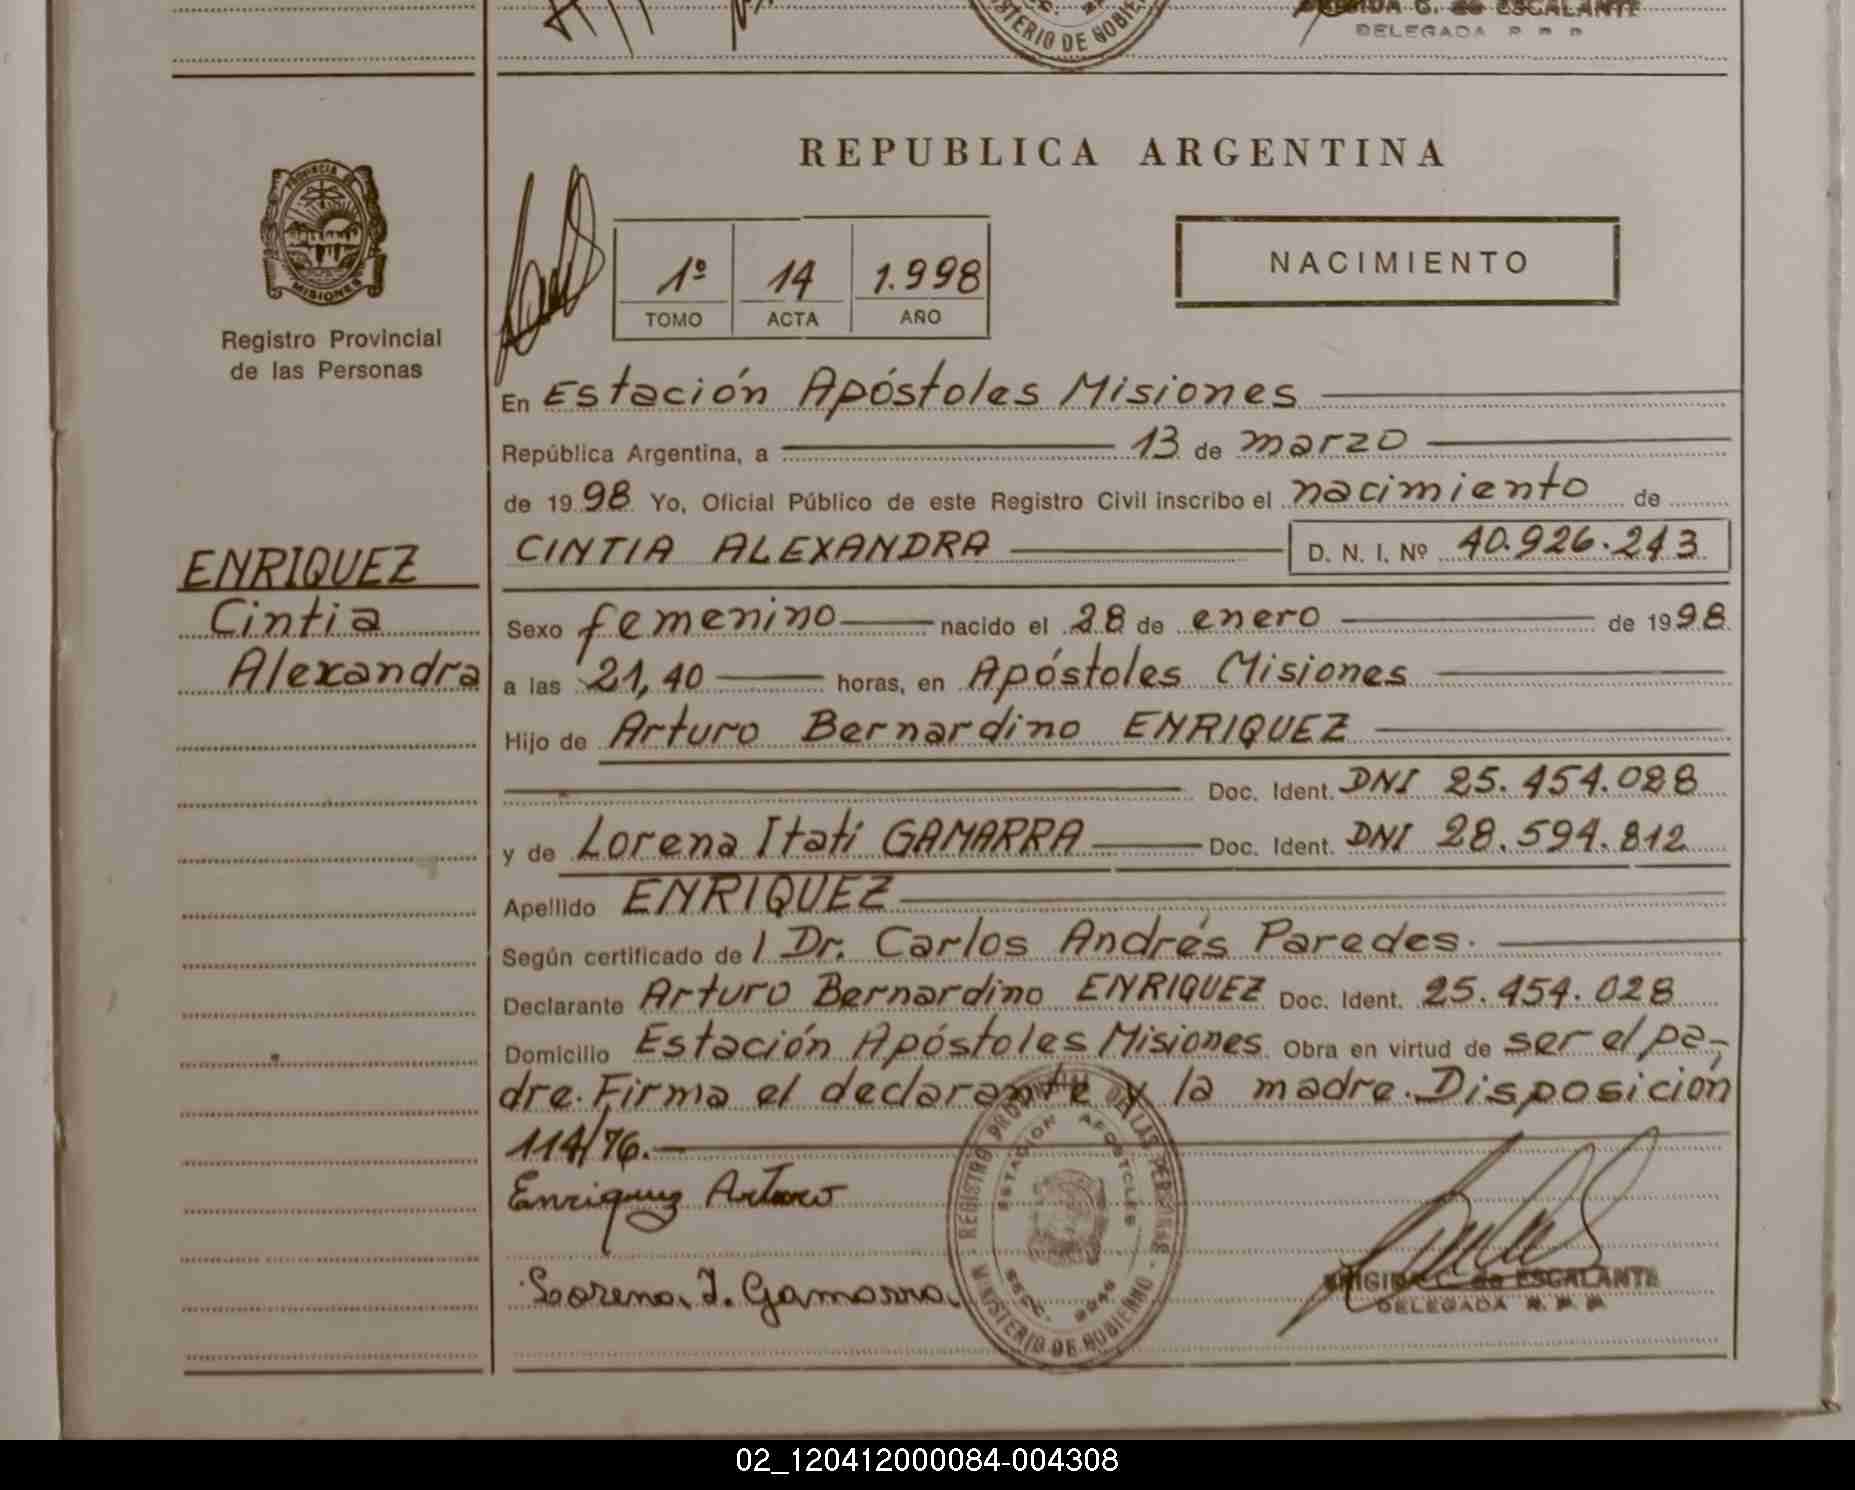 MINISTERIO DE GOBIERNO
BRIGIDA C. de ESCALANTE
DELEGADA R. P. P.
REPUBLICA ARGENTINA
PROVINCIA DE
MISIONES
Registro Provincial
de las Personas
1º 14 1.998
TOMO ACTA AÑO
NACIMIENTO
En Estación Apóstoles Misiones
República Argentina, a 13 de marzo
de 1998 Yo, Oficial Público de este Registro Civil inscribo el nacimiento de
CINTIA ALEXANDRA D. N. I. Nº 40.926.243
ENRIQUEZ
Cintia
Alexandra
Sexo femenino nacido el 28 de enero de 1998
a las 21,40 horas, en Apóstoles Misiones
Hijo de Arturo Bernardino ENRIQUEZ
Doc. Ident. DNI 25.454.028
y de Lorena Itatí GAMARRA Doc. Ident. DNI 28.594.812
Apellido ENRIQUEZ
Según certificado de / Dr. Carlos Andrés Paredes.
Declarante Arturo Bernardino ENRIQUEZ Doc. Ident. 25.454.028
Domicilio Estación Apóstoles Misiones Obra en virtud de ser el pa-
dre. Firma el declarante y la madre. Disposición
114/76.
Enriquez Arturo
Lorena I. Gamarra
REGISTRO PROVINCIAL DE LAS PERSONAS
ESTACION APOSTOLES
MINISTERIO DE GOBIERNO
BRIGIDA C. de ESCALANTE
DELEGADA R. P. P.
02_120412000084-004308